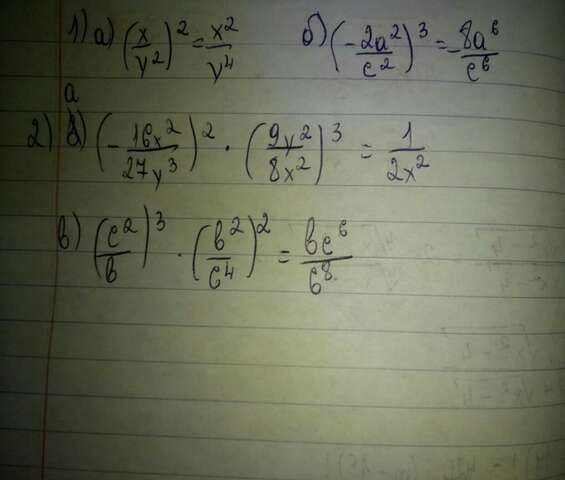 1) а) (x/y²)² = x²/y⁴ б) (-2a²/c²)³ = -8a⁶/c⁶
а
2) (-16x²/27y³)² · (9y²/8x²)³ = 1/2x²
в) (c²/b)³ · (b²/c⁴)² = bc⁶/c⁸